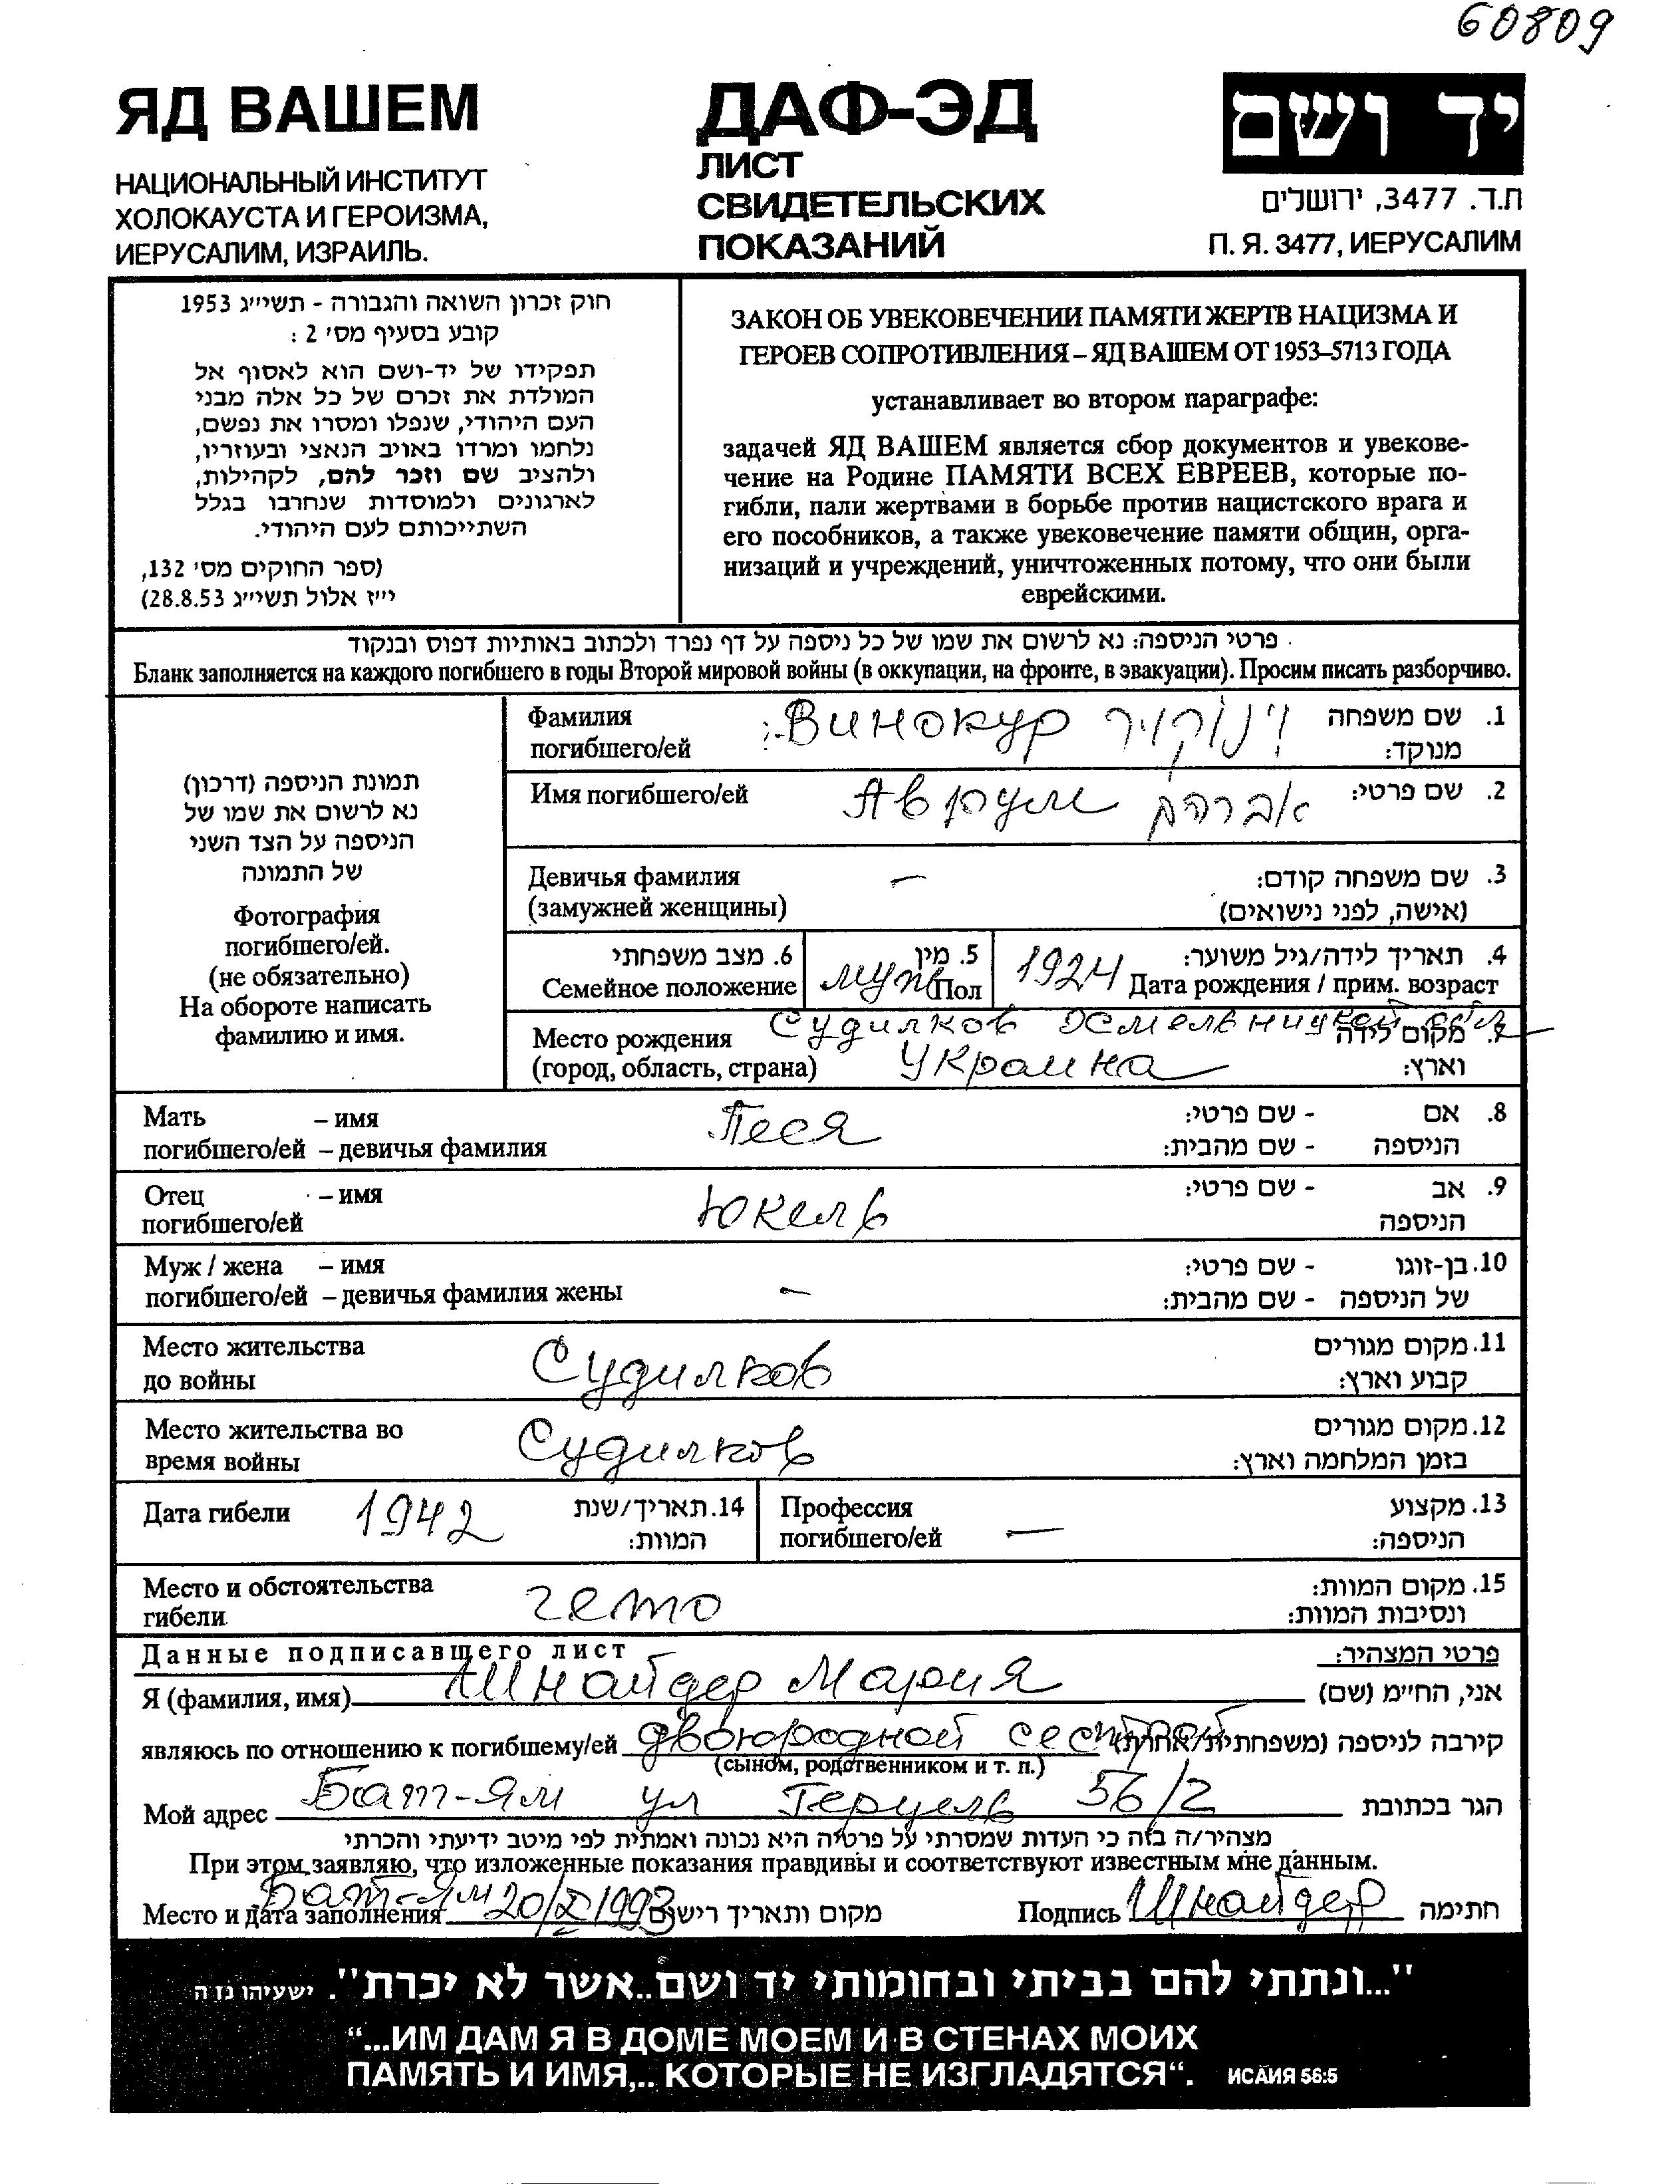 60809
ЯД ВАШЕМ
НАЦИОНАЛЬНЫЙ ИНСТИТУТ
ХОЛОКАУСТА И ГЕРОИЗМА,
ИЕРУСАЛИМ, ИЗРАИЛЬ.
ДАФ-ЭД
ЛИСТ
СВИДЕТЕЛЬСКИХ
ПОКАЗАНИЙ
יד ושם
ת.ד. 3477, ירושלים
П. Я. 3477, ИЕРУСАЛИМ
חוק זכרון השואה והגבורה - תשי״ג 1953
קובע בסעיף מס׳ 2 :
תפקידו של יד-ושם הוא לאסוף אל
המולדת את זכרם של כל אלה מבני
העם היהודי, שנפלו ומסרו את נפשם,
נלחמו ומרדו באויב הנאצי ובעוזריו,
ולהציב שם וזכר להם, לקהילות,
לארגונים ולמוסדות שנחרבו בגלל
השתייכותם לעם היהודי.
(ספר החוקים מס׳ 132,
י״ז אלול תשי״ג 28.8.53)
ЗАКОН ОБ УВЕКОВЕЧЕНИИ ПАМЯТИ ЖЕРТВ НАЦИЗМА И
ГЕРОЕВ СОПРОТИВЛЕНИЯ – ЯД ВАШЕМ ОТ 1953–5713 ГОДА
устанавливает во втором параграфе:
задачей ЯД ВАШЕМ является сбор документов и увекове-
чение на Родине ПАМЯТИ ВСЕХ ЕВРЕЕВ, которые по-
гибли, пали жертвами в борьбе против нацистского врага и
его пособников, а также увековечение памяти общин, орга-
низаций и учреждений, уничтоженных потому, что они были
еврейскими.
פרטי הניספה: נא לרשום את שמו של כל ניספה על דף נפרד ולכתוב באותיות דפוס ובנקוד
Бланк заполняется на каждого погибшего в годы Второй мировой войны (в оккупации, на фронте, в эвакуации). Просим писать разборчиво.
תמונת הניספה (דרכון)
נא לרשום את שמו של
הניספה על הצד השני
של התמונה
Фотография
погибшего/ей.
(не обязательно)
На обороте написать
фамилию и имя.
Фамилия Винокур וינוקור 1. שם משפחה
погибшего/ей מנוקד:
Имя погибшего/ей Аврум אברהם 2. שם פרטי:
Девичья фамилия – 3. שם משפחה קודם:
(замужней женщины) (אישה, לפני נישואים)
6. מצב משפחתי
Семейное положение
5. מין
муж Пол
4. תאריך לידה/גיל משוער:
1924 Дата рождения / прим. возраст
Судилков Хмельницкой обл
Место рождения 7. מקום לידה
(город, область, страна) Украина וארץ:
Мать – имя Песя 8. אם - שם פרטי:
погибшего/ей – девичья фамилия הניספה - שם מהבית:
Отец – имя Юкель 9. אב - שם פרטי:
погибшего/ей הניספה
Муж / жена – имя 10. בן-זוגו - שם פרטי:
погибшего/ей – девичья фамилия жены – של הניספה - שם מהבית:
Место жительства Судилков 11. מקום מגורים
до войны קבוע וארץ:
Место жительства во Судилков 12. מקום מגורים
время войны בזמן המלחמה וארץ:
Дата гибели 1942 14. תאריך/שנת
המוות:
Профессия 13. מקצוע
погибшего/ей – הניספה:
Место и обстоятельства гето 15. מקום המוות:
гибели ונסיבות המוות:
Данные подписавшего лист פרטי המצהיר:
Я (фамилия, имя) Шнайдер Мария אני, הח״מ (שם)
являюсь по отношению к погибшему/ей двоюродной сестрой קירבה לניספה (משפחתית/אחרת)
(сыном, родственником и т. п.)
Мой адрес Бат-Ям ул Герцель 56/2 הגר בכתובת
מצהיר/ה בזה כי העדות שמסרתי על פרטיה היא נכונה ואמתית לפי מיטב ידיעתי והכרתי
При этом заявляю, что изложенные показания правдивы и соответствуют известным мне данным.
Место и дата заполнения Бат-Ям 20/X 1993 מקום ותאריך רישום Подпись Шнайдер חתימה
"...ונתתי להם בביתי ובחומותי יד ושם..אשר לא יכרת". ישעיהו נז ה
“...ИМ ДАМ Я В ДОМЕ МОЕМ И В СТЕНАХ МОИХ
ПАМЯТЬ И ИМЯ,.. КОТОРЫЕ НЕ ИЗГЛАДЯТСЯ“. ИСАИЯ 56:5